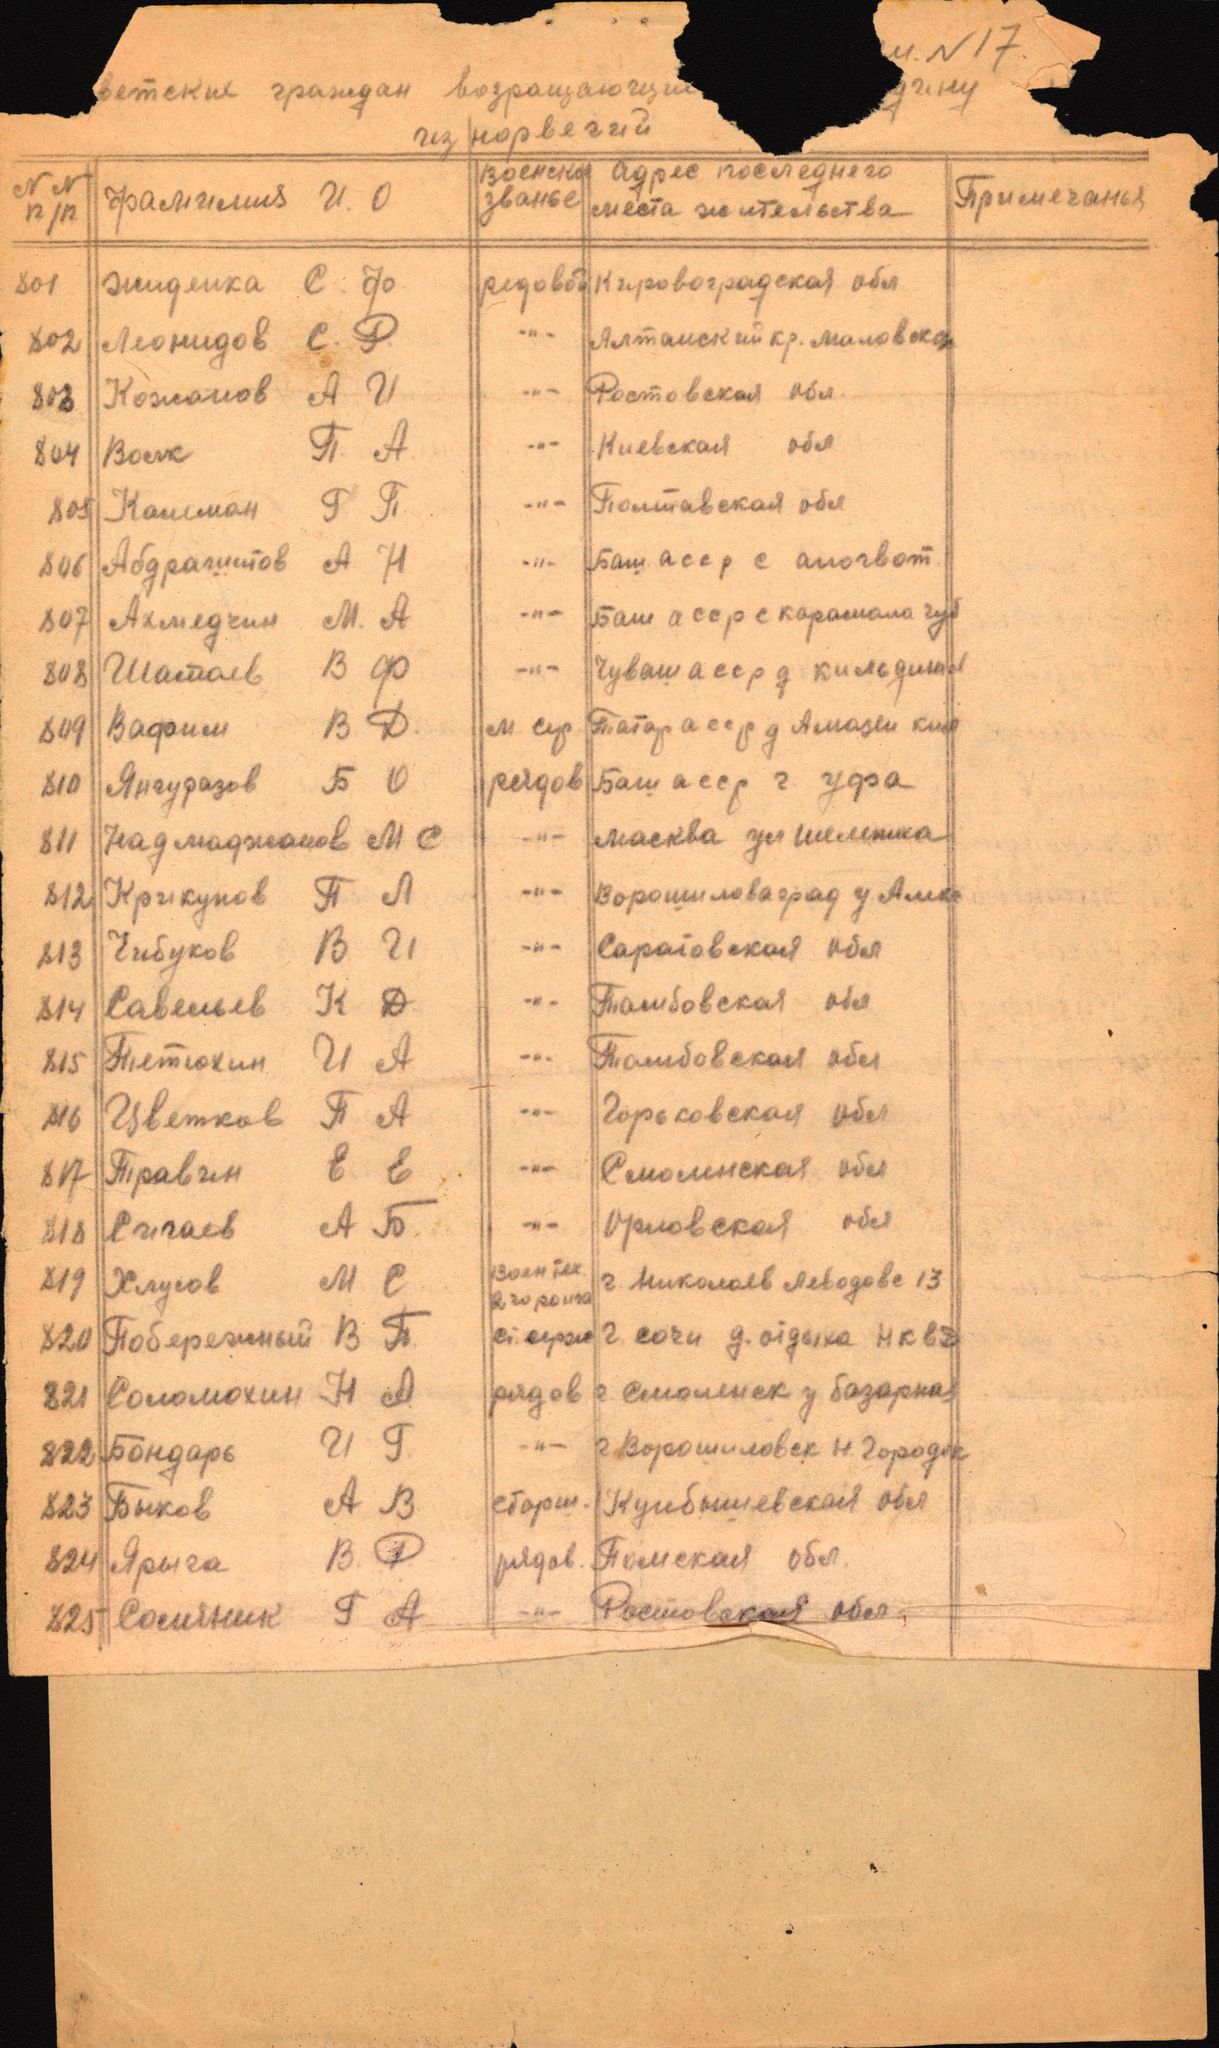 м. N 17.
ветских граждан возращающи дину
из норвегий
N N п/п Фамилия И. О Военско званье Адрес последнего места жительства Примечанья
801 Жиденка С Ф редовой Кировоградская обл
802 Леонидов С. Р. -"- Алтайский кр.
803 Кожанов А И -"- Ростовская обл.
804 Волк П. А. -"- Киевская обл
805 Калиман Г П. -"- Полтавская обл
806 Абдрашитов А Н -"- Баш асср с
807 Ахмедчин М. А -"- Баш асср с карамала
808 Шатаев В Ф -"- Чуваш асср д
809 Вафин В Д. м сер Татар асср д
810 Янгуразов Б О рядов Баш асср г уфа
811 Надмаджанов М С -"- масква ул
812 Крикунов П Л -"- Ворошиловаград у.
813 Чибуков В И -"- Саратовская обл
814 Савельев К Д -"- Тамбовская обл
815 Петюхин И А -"- Тамбовская обл
816 Цветков П А -"- Горьковская обл
817 Травин Е Е -"- Смоленская обл
818 Сигаев А Б. -"- Орловская обл
819 Хлусов М С Воентех. 2го ранга г. Николаев 13
820 Побережный В П. ст. серж г. сочи д. отдыха НКВД
821 Соломохин Н А рядов г Смоленск у базарная
822 Бондарь И Г -"- г Ворошиловск Н. Городок
823 Быков А В старш. Куйбышевская обл
824 Ярыга В. Р рядов. Томская обл.
825 Г А -"- Ростовская обл.